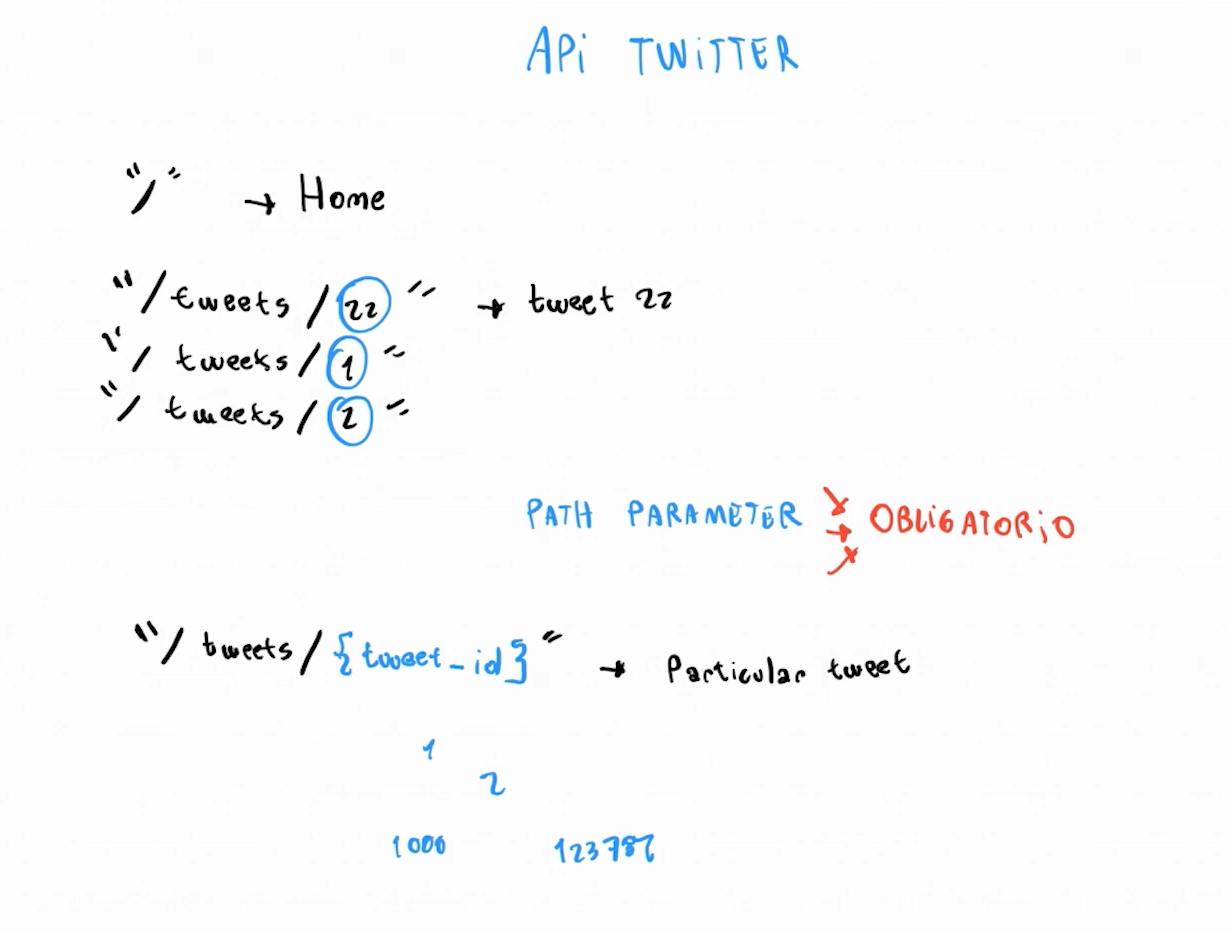 APi TWiTTER
"/" → Home
"/tweets/22" → tweet 22
"/tweets/1"
"/tweets/2"
PATH PARAMETER → OBLiGATORiO
"/tweets/{tweet_id}" → Particular tweet
1
2
1000